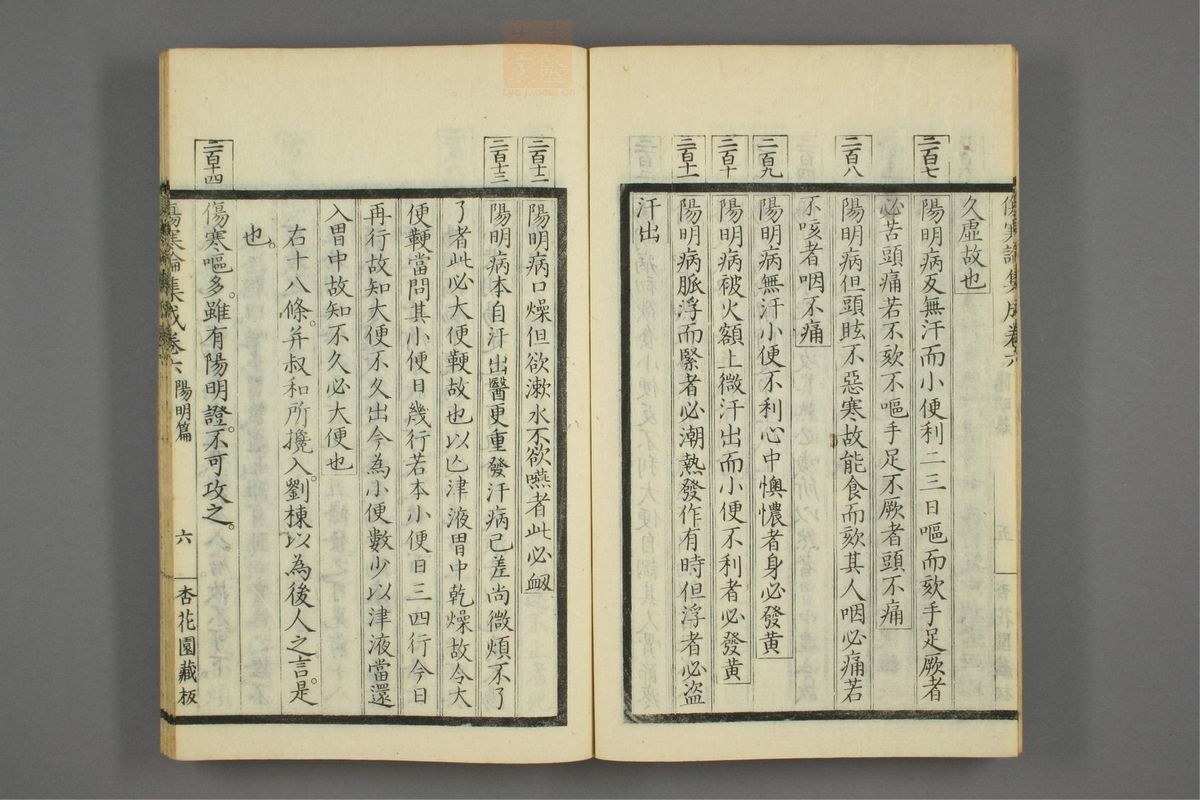 傷寒論集成卷六
久虛故也
二百七
陽明病反無汗而小便利二三日嘔而欬手足厥者
必苦頭痛若不欬不嘔手足不厥者頭不痛
二百八
陽明病但頭眩不惡寒故能食而欬其人咽必痛若
不咳者咽不痛
二百九
陽明病無汗小便不利心中懊憹者身必發黃
二百十
陽明病被火額上微汗出而小便不利者必發黃
二百十一
陽明病脈浮而緊者必潮熱發作有時但浮者必盜
汗出
二百十二
陽明病口燥但欲漱水不欲嚥者此必衂
二百十三
陽明病本自汗出醫更重發汗病已差尚微煩不了
了者此必大便鞕故也以亡津液胃中乾燥故令大
便鞕當問其小便日幾行若本小便日三四行今日
再行故知大便不久出今為小便數少以津液當還
入胃中故知不久必大便也
右十八條。并叔和所攙入。劉棟以為後人之言。是
也。
二百十四
傷寒嘔多。雖有陽明證。不可攻之。
傷寒論集成卷六 陽明篇 六 杏花園藏板